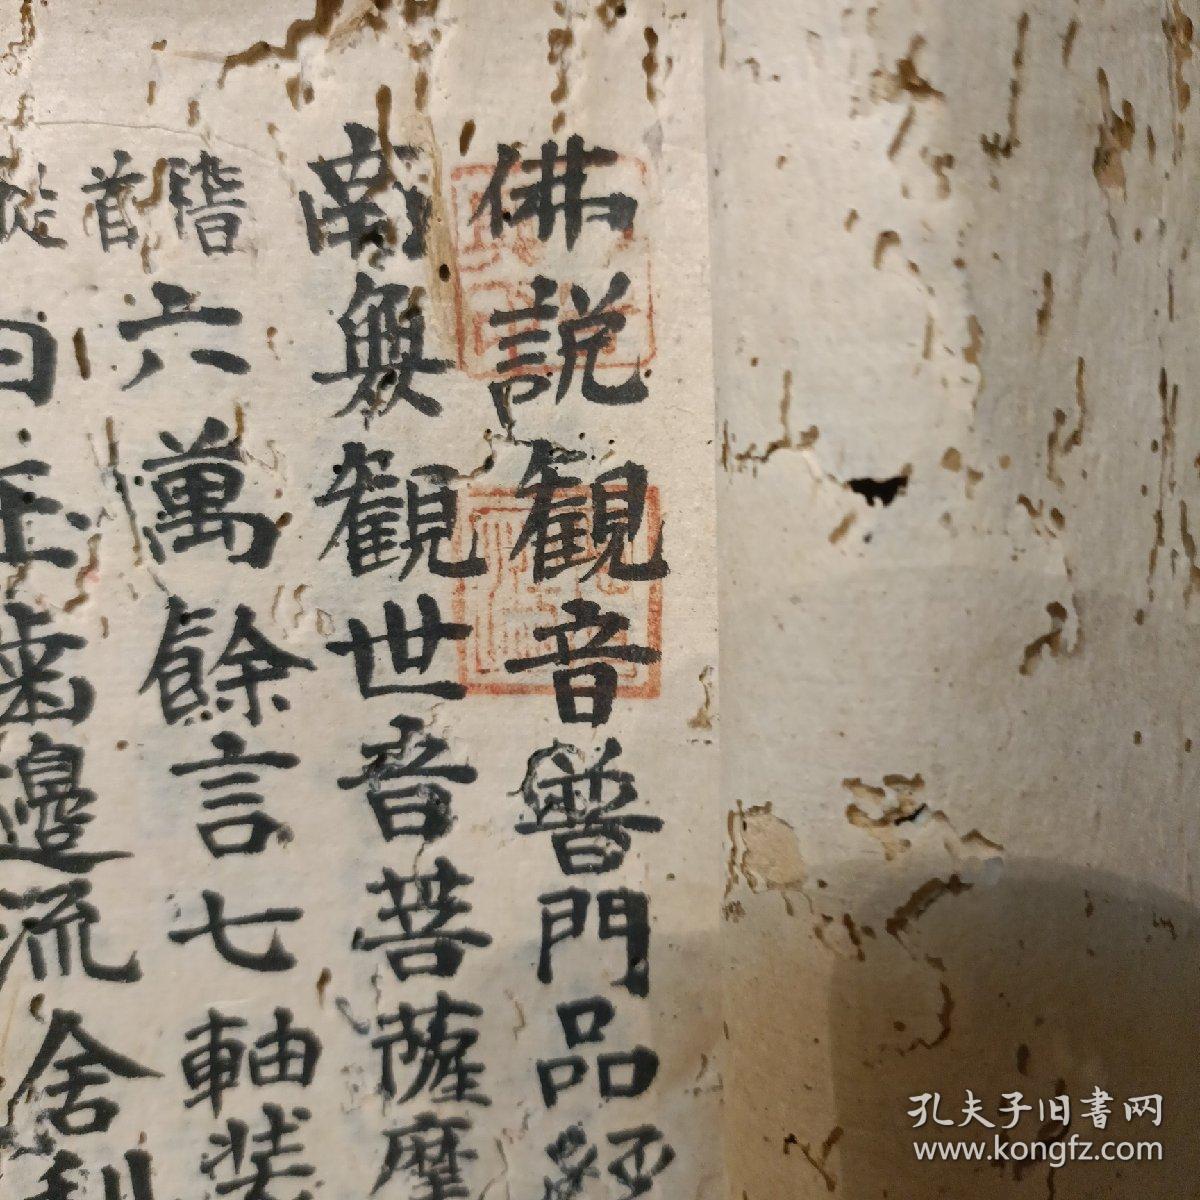 佛說觀音普門品経
南無觀世音菩薩摩
稽首
六萬餘言七軸装
従
口玉齒邊流舍利
孔夫子旧書网
www.kongfz.com